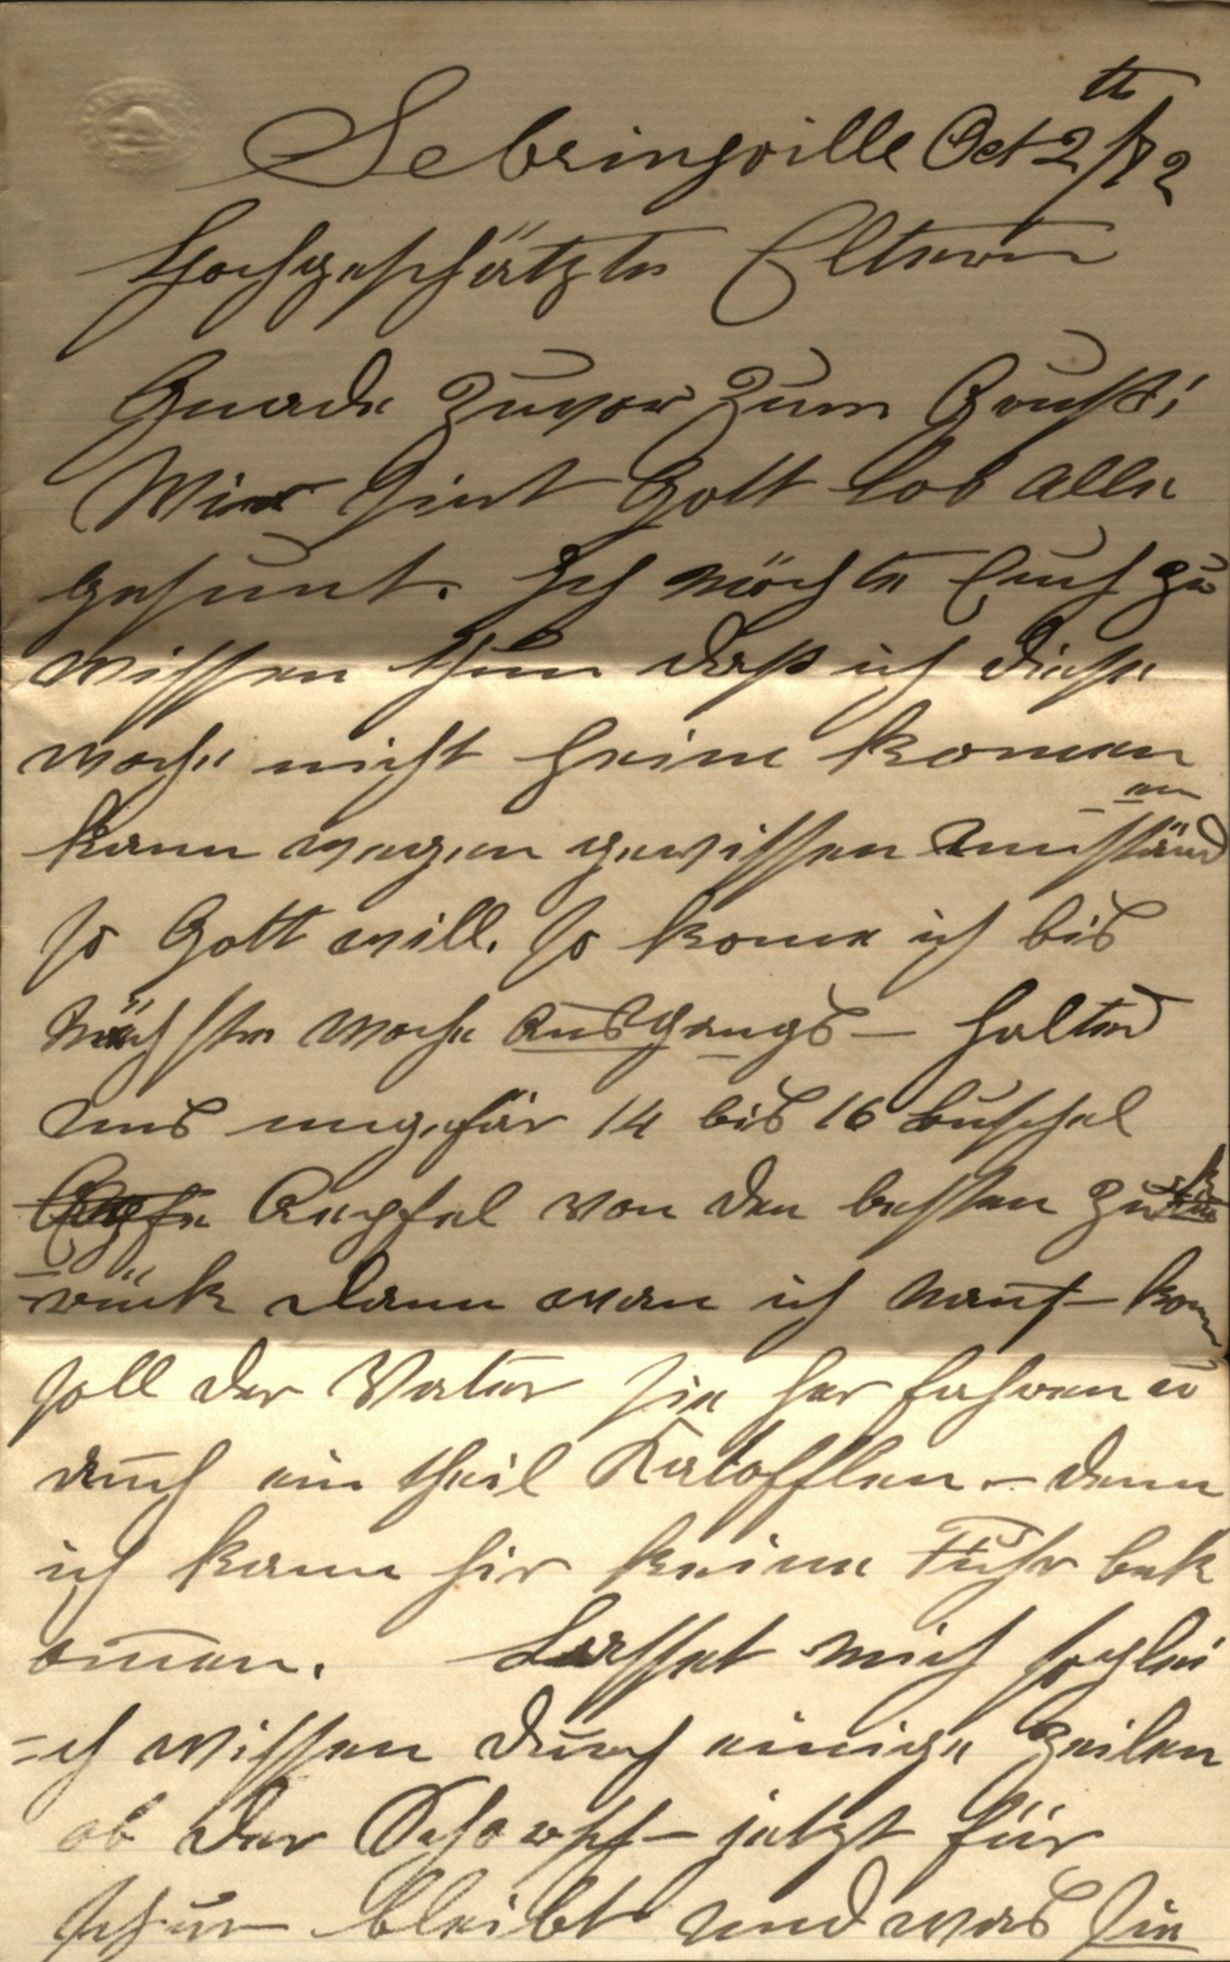 Sebringville Oct 2th/82
Hochgeschätzte Eltern
Gnade zuvor zum Gruß!
Wir sint Gott lob alle
gesunt. Ich möchte Euch zu
wissen thun daß ich diese
woche nicht heim komen
kann wegen gewissen umständ
en
so Gott will. so kome ich bis
nächste woche ausgangs – haltend
uns ungefär 14 bis 16 buschel
Aepfel von den besten zu
–rück dann wan ich nauf kom
soll der Vater sie her fahren u
auch ein theil Katofflen – denn
ich kann hir keine Fuhr bek
omen. Lasset mich soglei
=ch wissen durch einige Zeilen
ob der jetzt für
schur bleibt und was sie